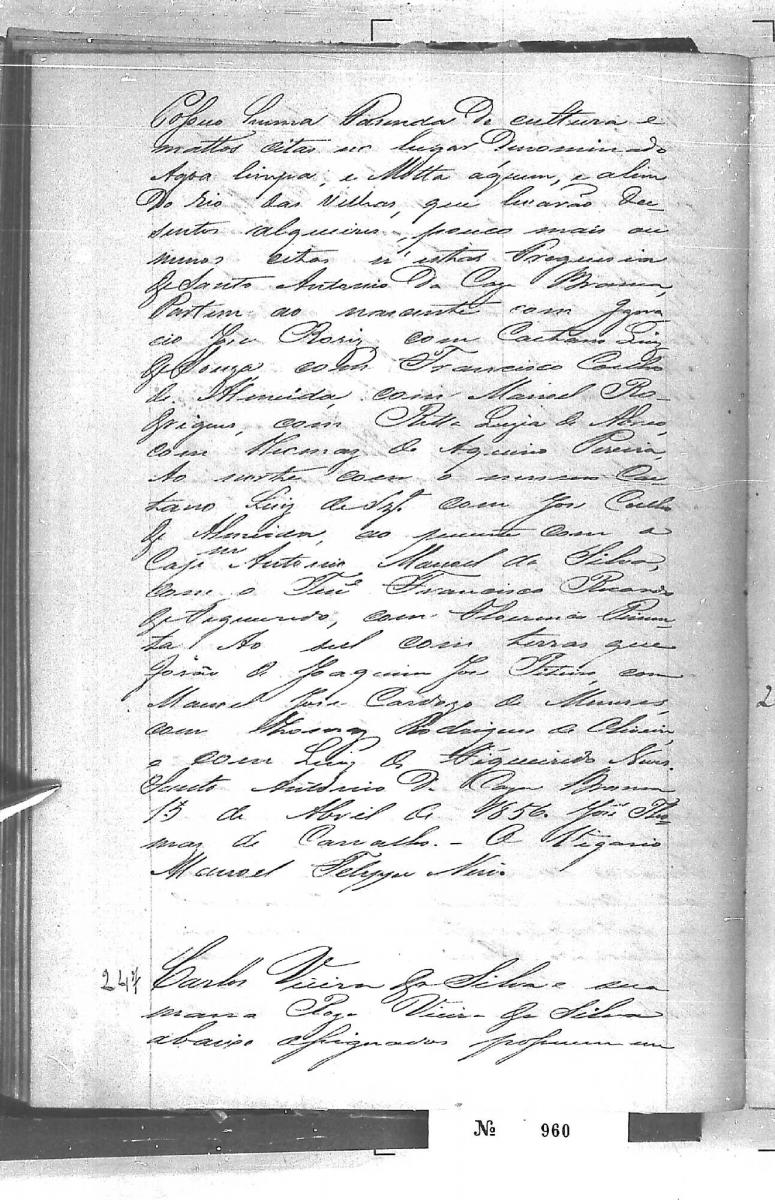 Posuo huma Fazenda de cultura e
mattos citas no lugar Denominado
Agoa limpa, e Motta áquem, e alem
do Rio das Velhas, que levarão du-
sentos alqueires, pouco mais ou
menos citos n'esta Freguesia
de Santo Antonio da Caza Branca,
Partem ao nascente com Igna-
cio José Roriz com Caetano Luiz
de Souza com Francisco Coelho
de Almeida com Manoel Ro-
drigues, com Ritta Luzia de Abreo
com Thomaz de Aquino Pereira,
Ao norte com o mesmo Cae-
tano Luiz de Sz.ª com José Coelho
de Almeida, ao poente com a
Antonio Manoel da Silva,
com o Ten.e Francisco
de Figueiredo, com Florencio Pimen-
ta Ao sul com terras que
forão de Joaquim José com
Manoel José Cardozo de Menezes,
com Thomaz Rodrigues de Oliveira,
e com Luiz de Figueiredo Neves.
Santo Antonio da Caza Branca
13 de Abril de 1856. José Tho-
maz de Carvalho. - O Vigario
Manoel Felippe Neri
247 Carlos Vieira da Silva e sua
mana Roza Vieira da Silva
abaixo assignados possuem um
№ 960
2